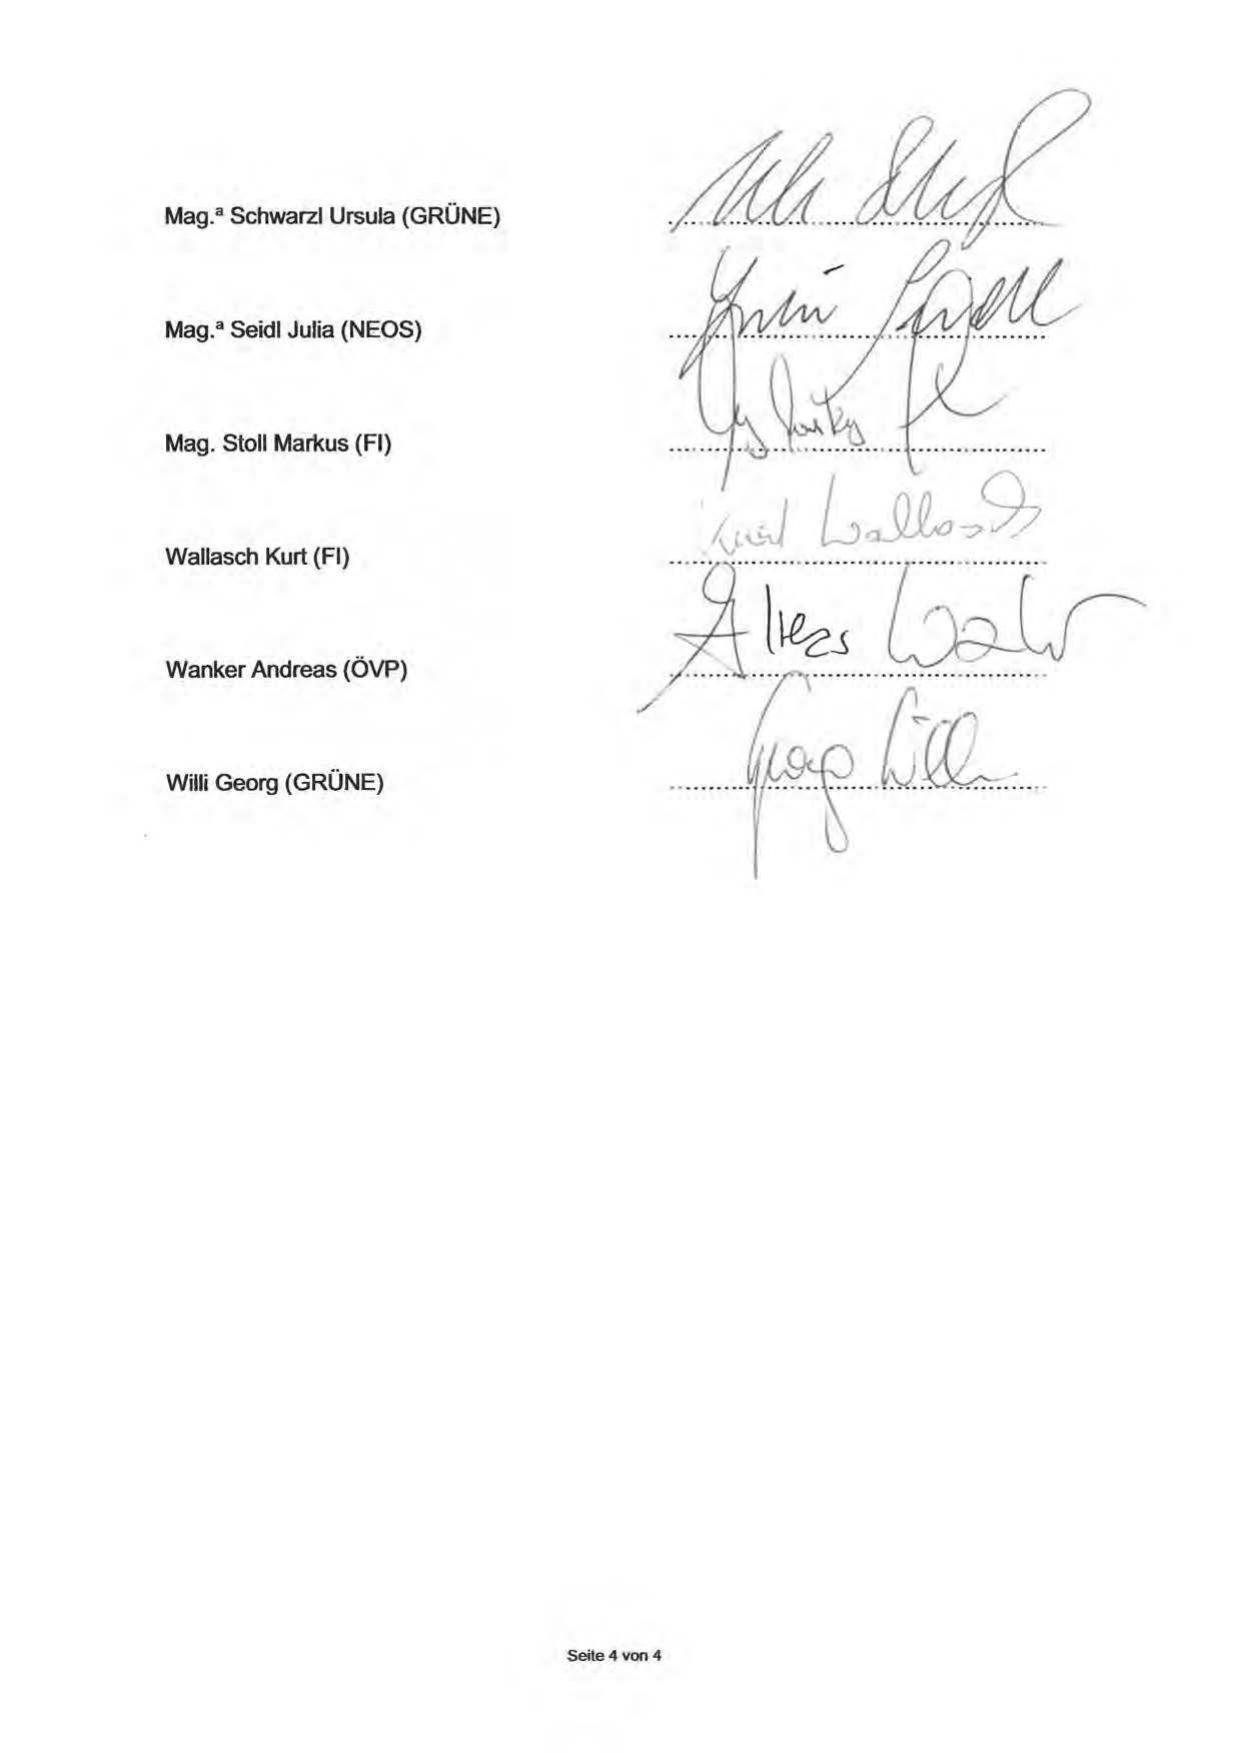 Mag.ª Schwarzl Ursula (GRÜNE)
Mag.ª Seidl Julia (NEOS)
Mag. Stoll Markus (FI)
Wallasch Kurt (FI)
Kurt Wallasch
Wanker Andreas (ÖVP)
Willi Georg (GRÜNE)
Georg Willi
Seite 4 von 4